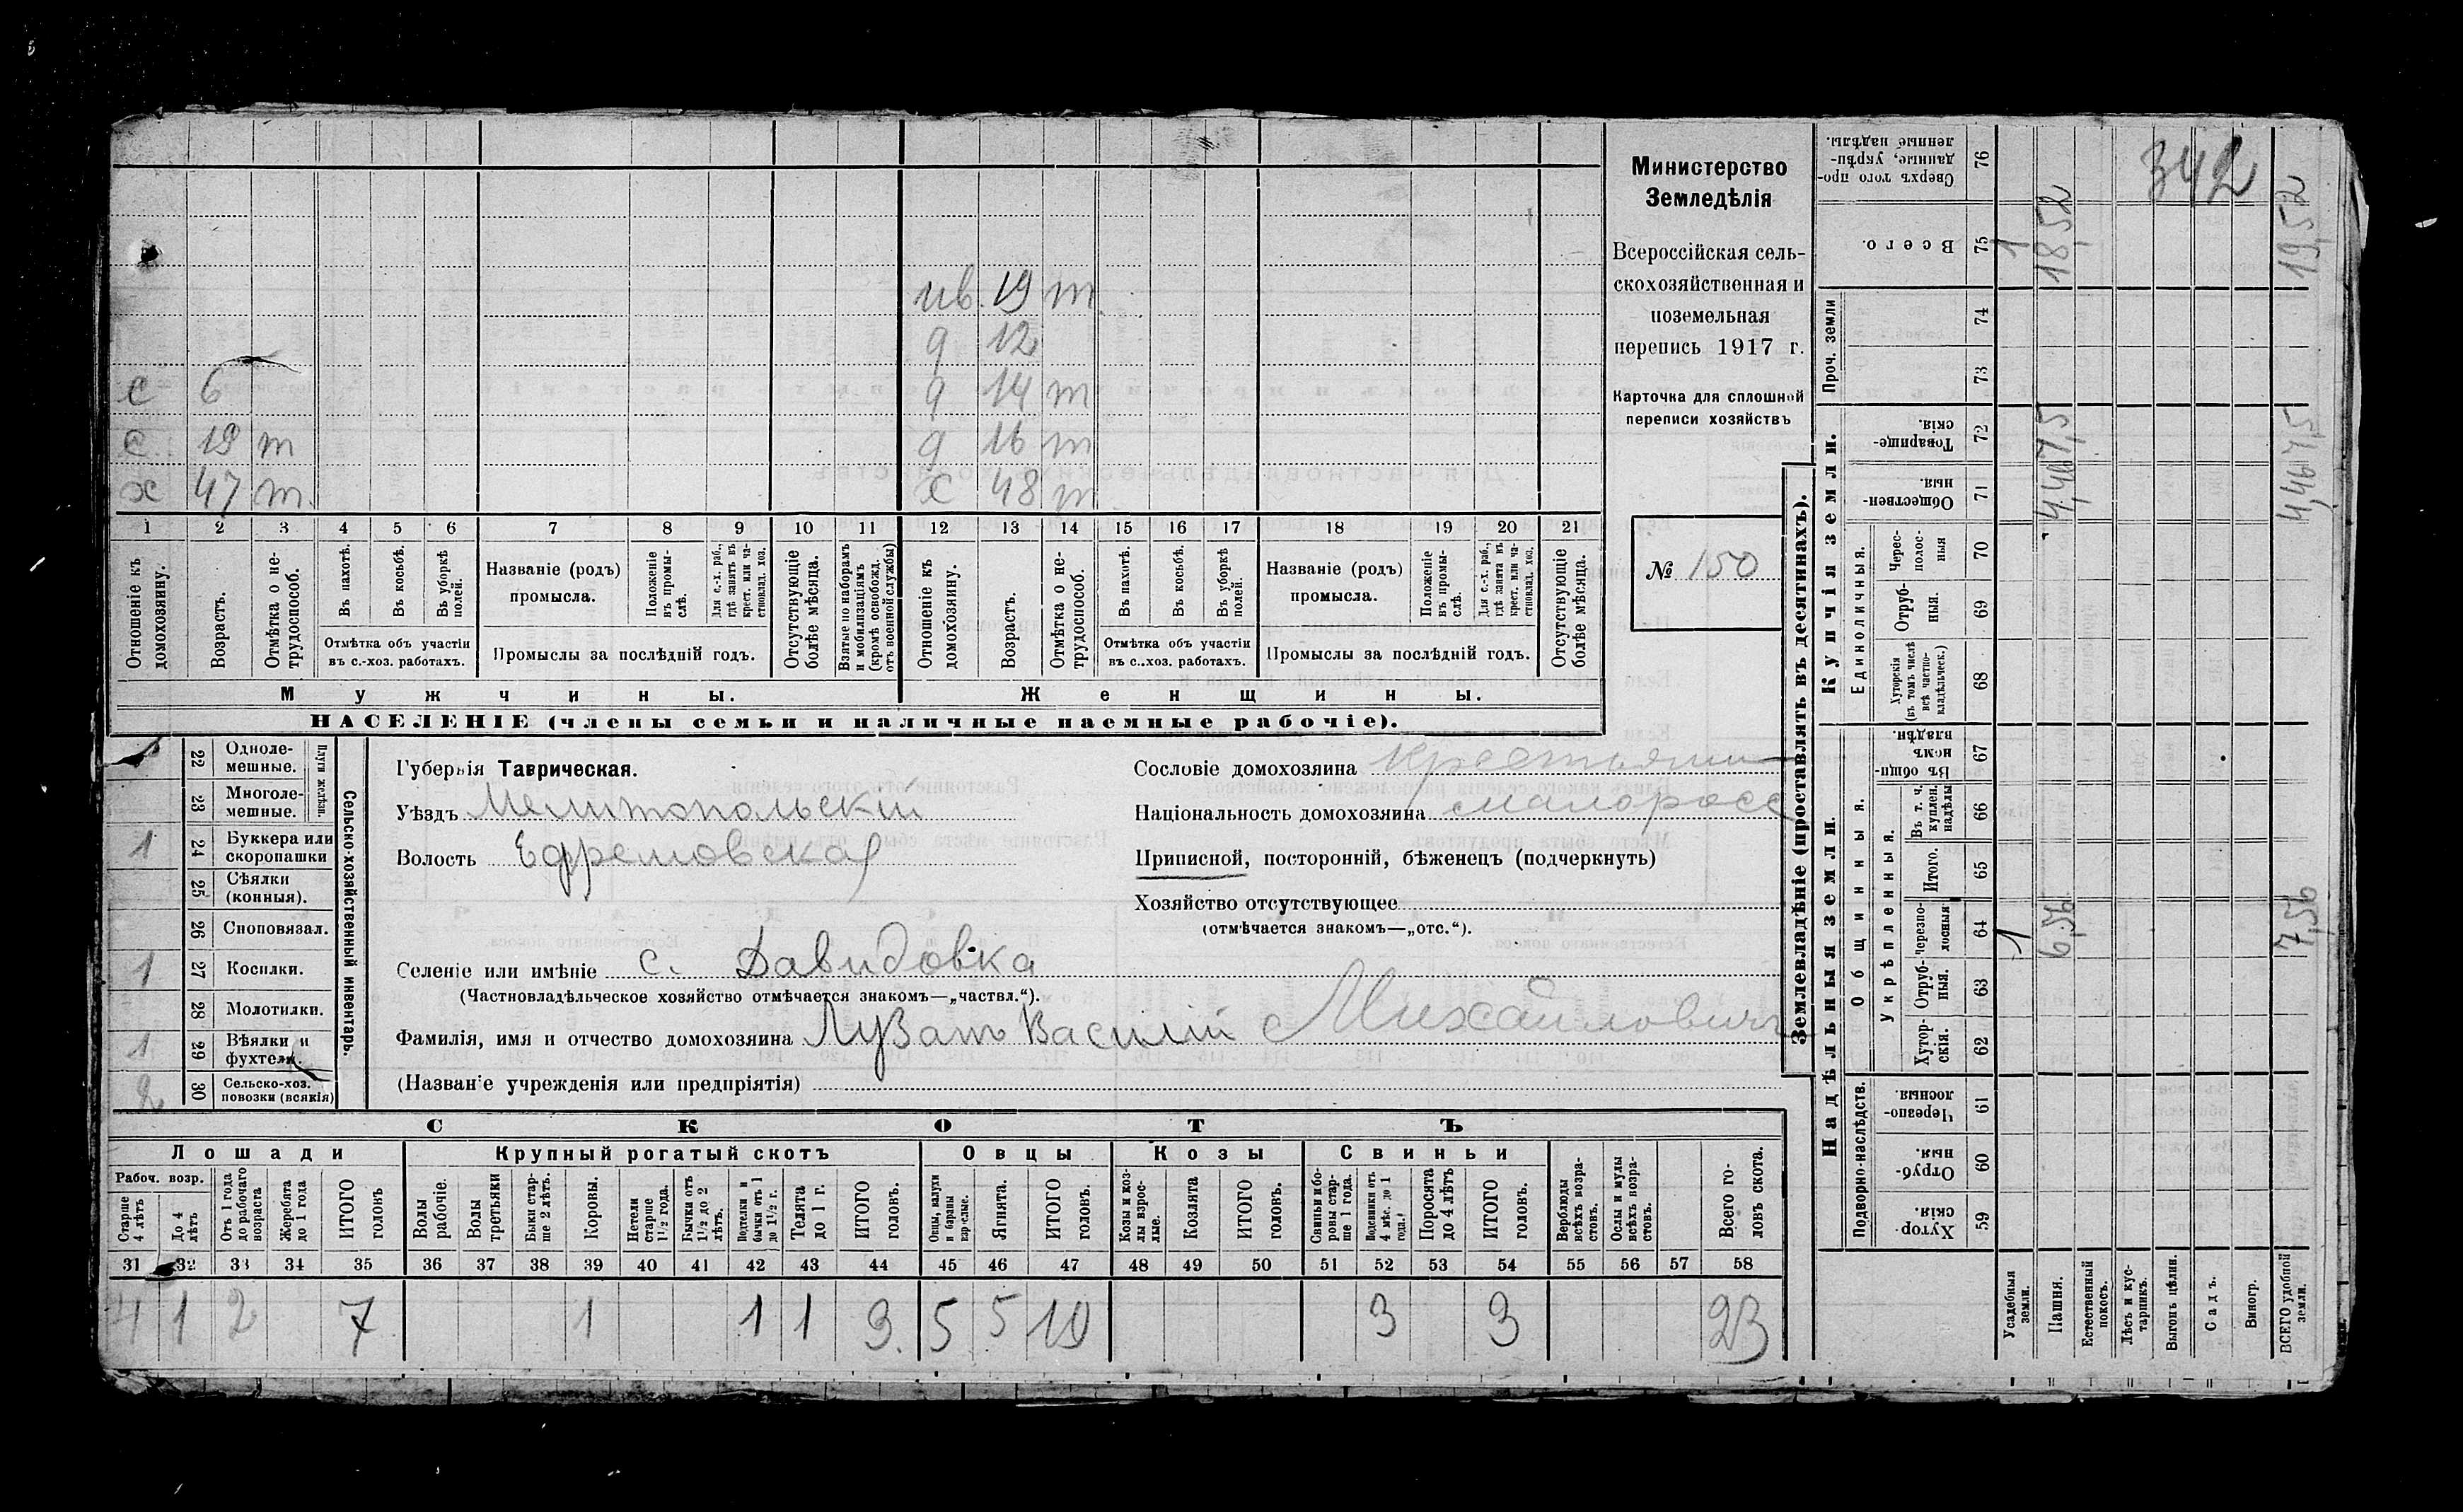 ив. 19 т
д 12
с 6 д 14 т
с 19 т д 16 т
х 47 т. х 48 т
1 2 3 4 5 6 7 8 9 10 11 12 13 14 15 16 17 18 19 20 21
Отношеніе къ домохозяину.
Возрастъ.
Отмѣтка о не-трудоспособ.
Въ пахотѣ.
Въ косьбѣ.
Въ уборкѣ полей.
Отмѣтка объ участіи
въ с.-хоз. работахъ.
Названіе (родъ)
промысла.
Положеніе въ промы-слѣ.
Для с.-х. раб., гдѣ занятъ въ крест. или ча-стновлад. хоз.
Промыслы за послѣдній годъ.
Отсутствующіе болѣе мѣсяца.
Взятые по наборамъ и мобилизаціямъ (кромѣ освобожд. отъ военной службы)
Отношеніе къ домохозяину.
Возрастъ.
Отмѣтка о не-трудоспособ.
Въ пахотѣ.
Въ косьбѣ.
Въ уборкѣ полей.
Отмѣтка объ участіи
въ с..хоз. работахъ.
Названіе (родъ)
промысла.
Положеніе въ промы-слѣ.
Для с.-х. раб., гдѣ занята въ крест. или ча-стновлад. хоз.
Промыслы за послѣдній годъ.
Отсутствующіе болѣе мѣсяца.
Мужчины. Женщины.
НАСЕЛЕНІЕ (члены семьи и наличные наемные рабочіе).
Министерство
Земледѣлія
Всероссійская сель-
скохозяйственная и
поземельная
перепись 1917 г.
Карточка для сплошной
переписи хозяйствъ
№ 150
22 Одноле-мешные.
23 Многоле-мешные.
Плуги желѣзн.
1 24 Буккера или скоропашки
25 Сѣялки (конныя).
26 Сноповязал.
1 27 Косилки.
28 Молотилки.
1 29 Вѣялки и фухтели.
2 30 Сельско-хоз. повозки (всякія)
Сельско-хозяйственный инвентарь.
Губернія Таврическая.
Уѣздъ Мелитопольскій
Волость Ефремовская
Сословіе домохозяина крестьянин
Національность домохозяина малоросс
Приписной, посторонній, бѣженецъ (подчеркнуть)
Хозяйство отсутствующее
(отмѣчается знакомъ—„отс.“).
Селеніе или имѣніе с. Давидовка
(Частновладѣльческое хозяйство отмѣчается знакомъ—„частвл.“).
Фамилія, имя и отчество домохозяина Лузанъ Василій Михайловичъ
(Названіе учрежденія или предпріятія)
СКОТЪ
Лошади Крупный рогатый скотъ Овцы Козы Свиньи
Рабоч. возр.
Старше 4 лѣтъ
До 4 лѣтъ
Отъ 1 года до рабочаго возраста
Жеребята до 1 года
ИТОГО головъ
Волы рабочіе.
Волы третьяки
Быки стар-ше 2 лѣтъ.
Коровы.
Нетели старше 1½ года.
Бычки отъ 1½ до 2 лѣтъ.
Подтелки и бычки отъ 1 до 1½ г.
Телята до 1 г.
ИТОГО головъ.
Овцы, валухи и бараны взрослые.
Ягнята.
ИТОГО головъ.
Козы и коз-лы взрос-лые.
Козлята
ИТОГО головъ.
Свиньи и бо-ровы стар-ше 1 года.
Подсвинки отъ 4 мѣс. до 1 года.
Поросята до 4 лѣтъ
ИТОГО головъ.
Верблюды всѣхъ возра-стовъ.
Ослы и мулы всѣхъ возра-стовъ.
Всего го-ловъ скота.
31 32 33 34 35 36 37 38 39 40 41 42 43 44 45 46 47 48 49 50 51 52 53 54 55 56 57 58
4 1 2 7 1 1 1 3. 5 5 10 3 3 23
Землевладѣніе (проставлять въ десятинахъ).
342
76 Сверхъ того про-данные, укрѣп-ленные надѣлы.
75 Всего. 1 18,52 19,52
Проч. земли
74
73
Купчія земли.
72 Товарище-скія.
71 Обществен-ныя.
4,4675 4,4675
Единоличныя.
70 Черес-полос-ныя
69 Отруб-ныя.
68 Хуторскія (въ томъ числѣ всѣ частно-владѣльческ.)
Надѣльныя земли.
Общинныя.
67 Въ общин-номъ владѣн.
Укрѣпленныя.
66 Въ т. ч. куплен. надѣлы
65 Итого.
64 Черезпо-лосныя 1 6,56 7,56
63 Отруб-ныя.
62 Хутор-скія.
Подворно-наслѣдств.
61 Черезпо-лосныя.
60 Отруб-ныя.
59 Хутор-скія.
Усадебныя земли.
Пашня.
Естественный покосъ.
Лѣсъ и кус-тарникъ.
Выгонъ цѣлин.
Садъ.
Виногр.
ВСЕГО удобной земли.